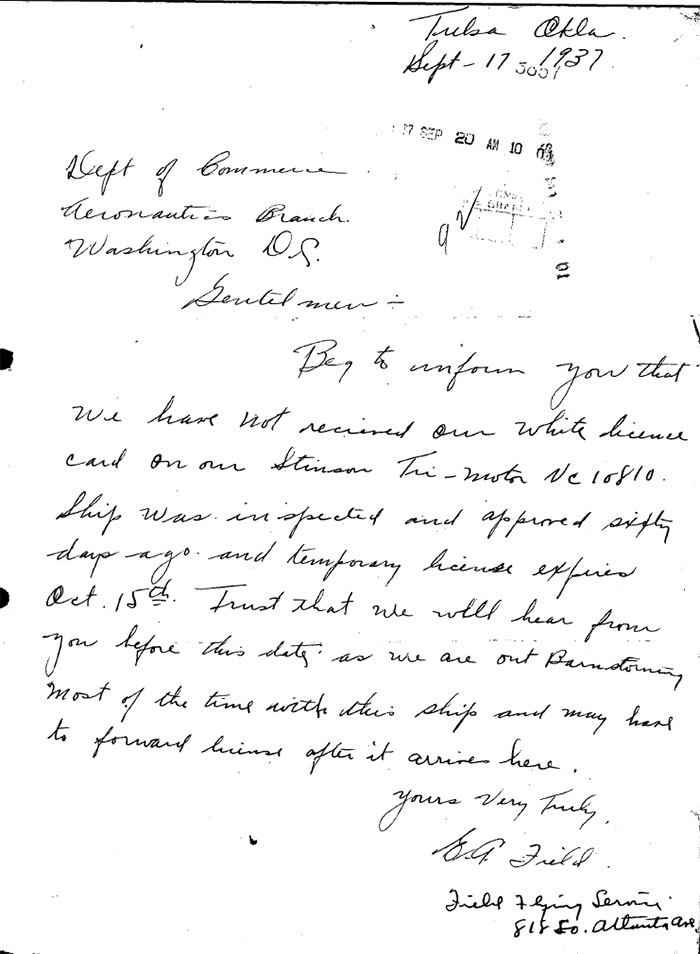 Tulsa Okla.
Sept-17 1937
3001
37 SEP 20 AM 10
Dept of Commerce
Aeronautics Branch.
Washington D.C.
92
Gentelmen:-
Beg to inform you that
we have not recieved our white licence
card on our Stinson Tri-motor Nc10810.
Ship was inspected and approved sixty
days ago. and temporary license expires
Oct. 15th. Trust that we will hear from
you before this date. as we are out Barnstorming
most of the time with this ship and may have
to forward license after it arrives here.
Yours Very Truly,
E.A. Field.
Field Flying Service.
818 So. Atlanta Ave